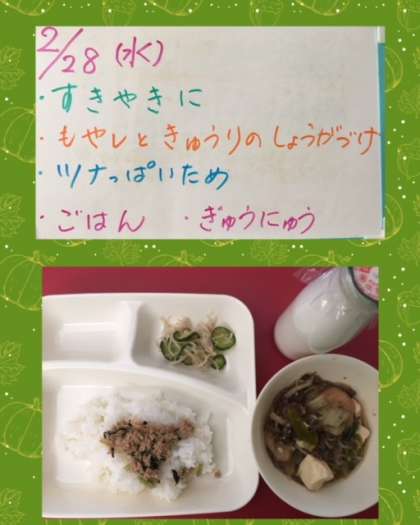 2/28 (水)
・すきやきに
・もやしときゅうりのしょうがづけ
・ツナっぱいため
・ごはん ・ぎゅうにゅう